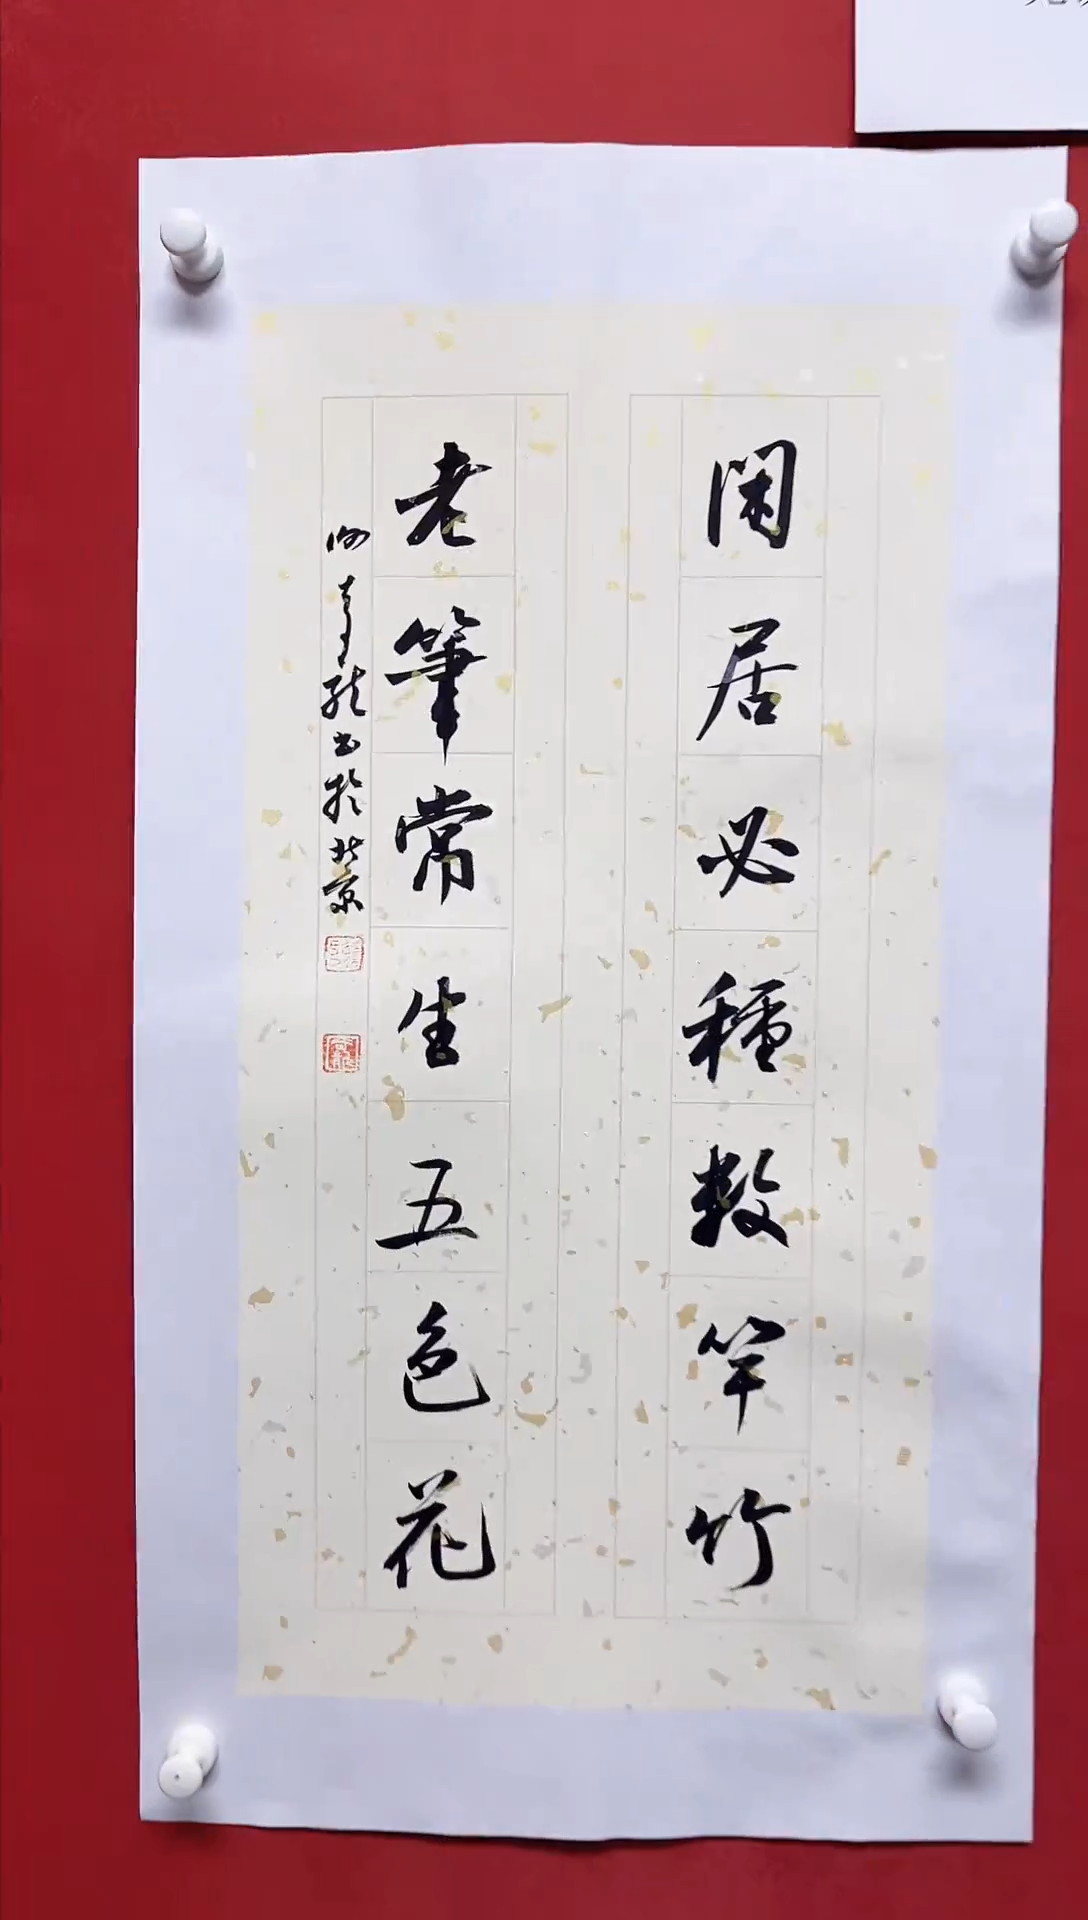 閑居必種數竿竹
老筆常生五色花
書於北京